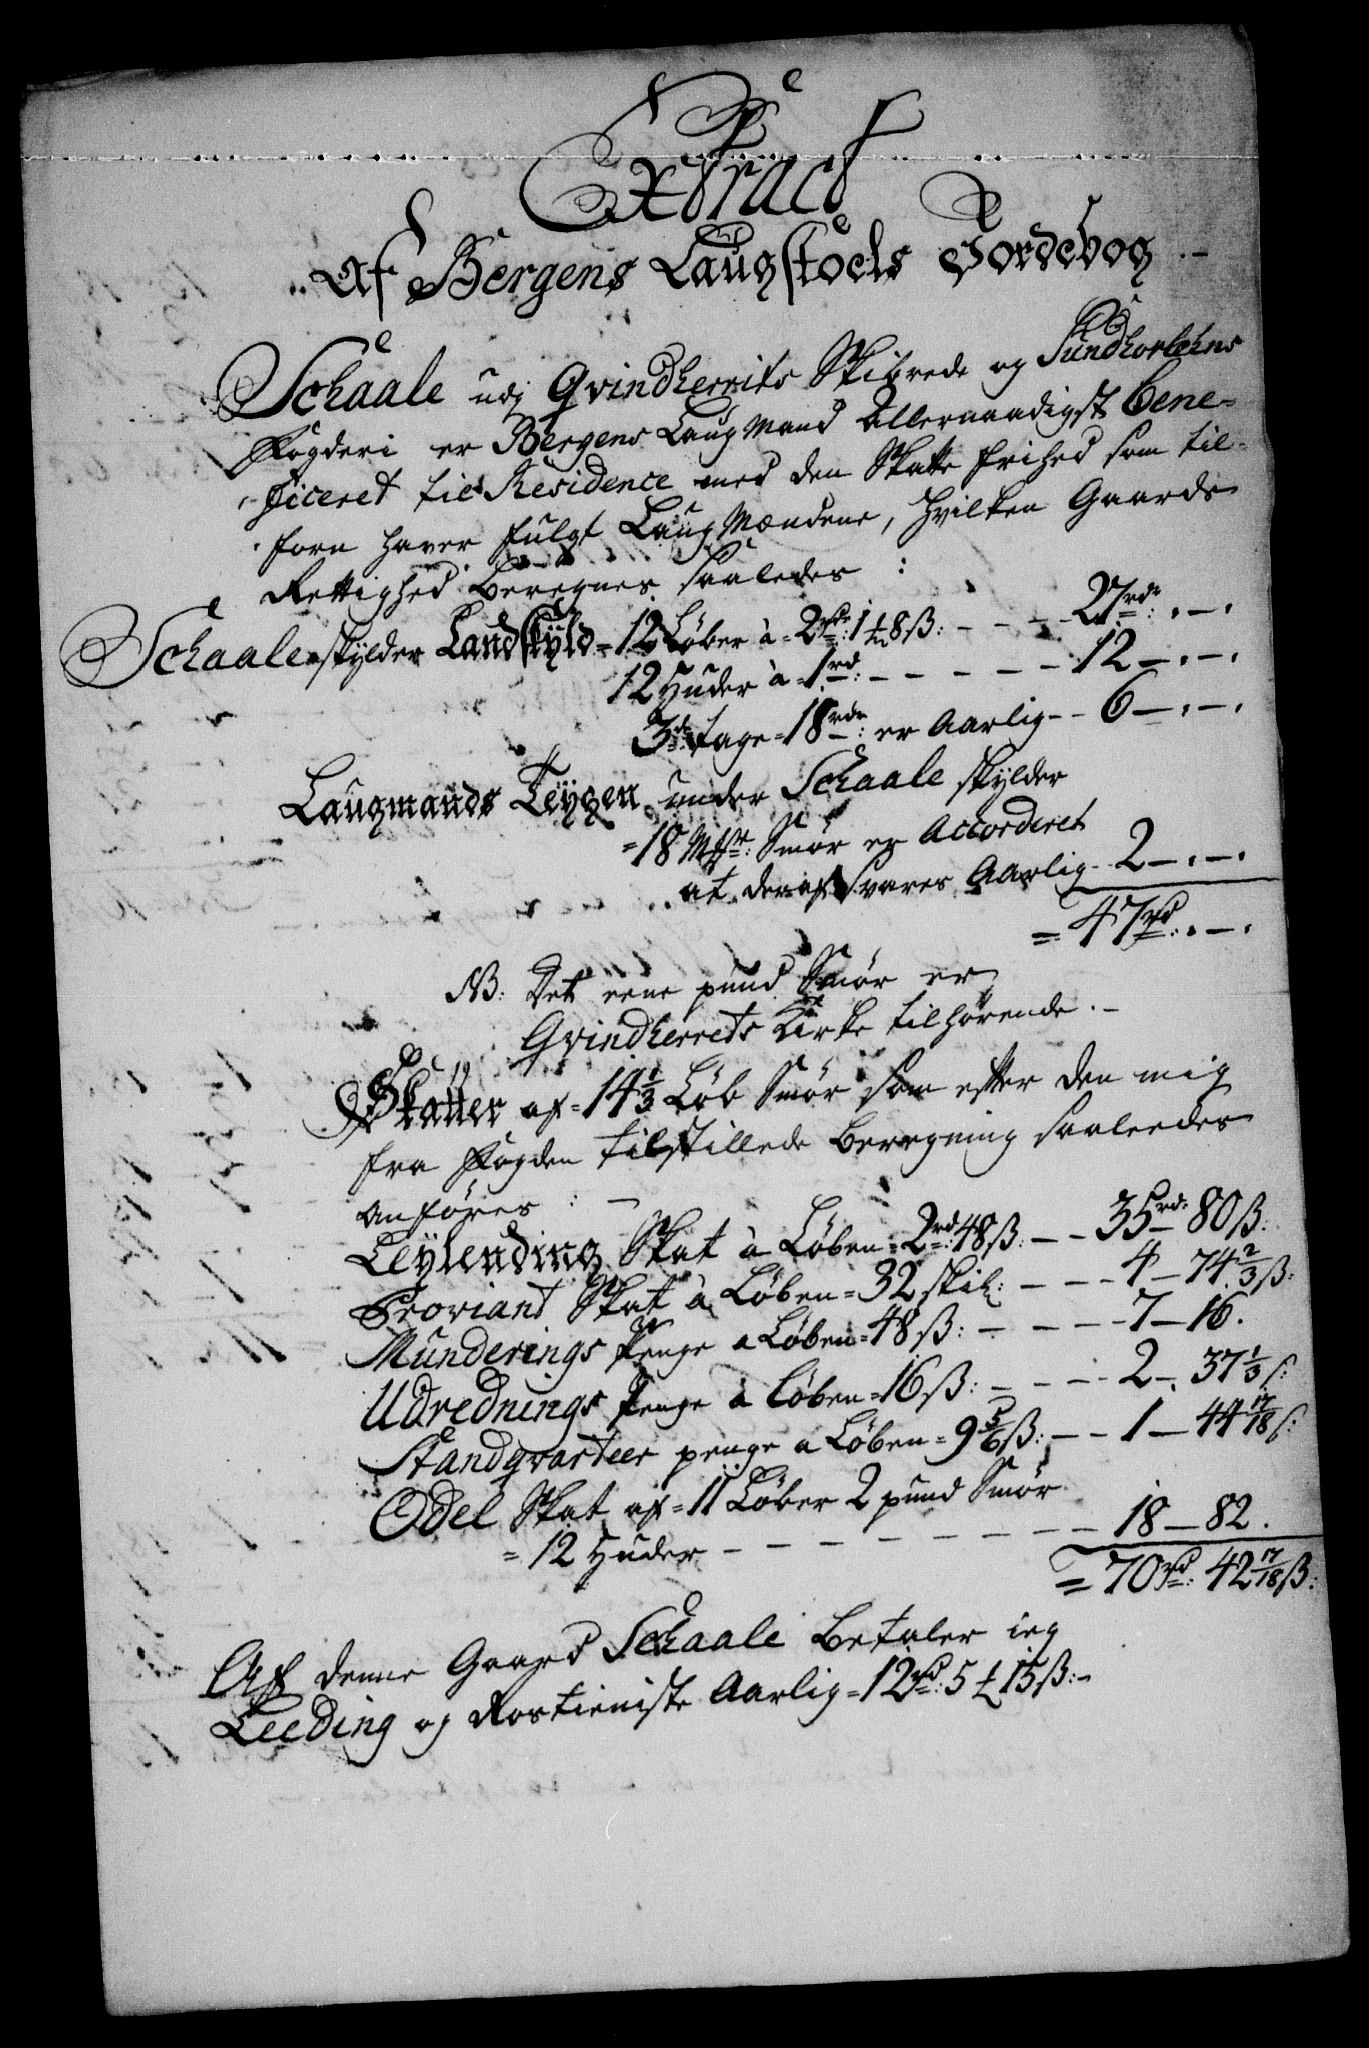 Extract
Af Bergens Laugstoels Jordebog
Schaale udj Qvindherrits Skibrede og Sundhorlehns
Fogderi er Bergens LaugMand Allernaadigst bene-
ficeret til Residence med den Skatte Frihed som til-
forn haver fulgt LaugMændene, hvilken Gaards
Rettighed beregnes saaledes :
Schaale skylder Landskyld = 12 Løber à = 2 rdr: 1 ℔ 8 ß: - - - - 27 rdr: . - .
12 Huder à = 1 rd: - - - - - 12 - . - .
3de tage = 18 rdr: er Aarlig - - 6 - . - .
Laugmands Teygen under Schaale skylder
= 18 Mkr: Smør er Accorderet
at deraf svares Aarlig - 2 - . - .
= 47 rd: . - .
NB: Det eene pund Smør er
Qvindherrets Kirke tilhørende . -
Skatter af = 14 1/3 Løb Smør som efter den mig
fra Fogden tilstillede Beregning saaleedes
anføres : -
Leylending Skat à Løben = 2 rd: 48 ß: - - 35 rd: 80 ß:
Proviant Skat à Løben = 32 skil: - - - 4 - 74 2/3 ß:
Munderings Penge a Løben = 48 ß: - - - - 7 - 16 .
Udrednings Penge à Løben = 16 ß: - - - - 2 - 37 1/3 ß:
Standqvarteer penge a Løben = 9 5/6 ß: - - 1 - 44 17/18 ß:
Odel Skat af = 11 Løber 2 pund Smør
= 12 Huder - - - - - - - - - 18 - 82 .
= 70 rd: 42 17/18 ß:
Af denne Gaard Schaale betaler ieg
Leeding og Rostieniste Aarlig = 12 rd: 5 ℔ 15 ß: -